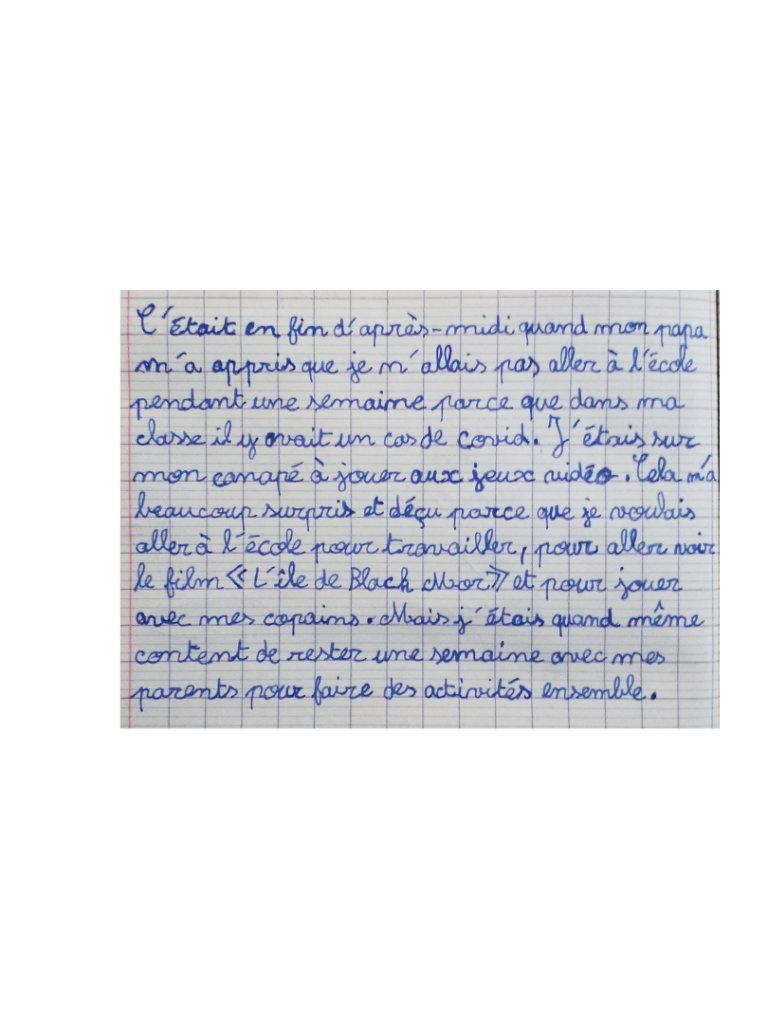 C'était en fin d'après-midi quand mon papa
m'a appris que je n'allais pas aller à l'école
pendant une semaine parce que dans ma
classe il y avait un cas de covid. J'étais sur
mon canapé à jouer aux jeux vidéo. Cela m'a
beaucoup surpris et déçu parce que je voulais
aller à l'école pour travailler, pour aller voir
le film « L'île de Black Mor » et pour jouer
avec mes copains. Mais j'étais quand même
content de rester une semaine avec mes
parents pour faire des activités ensemble.